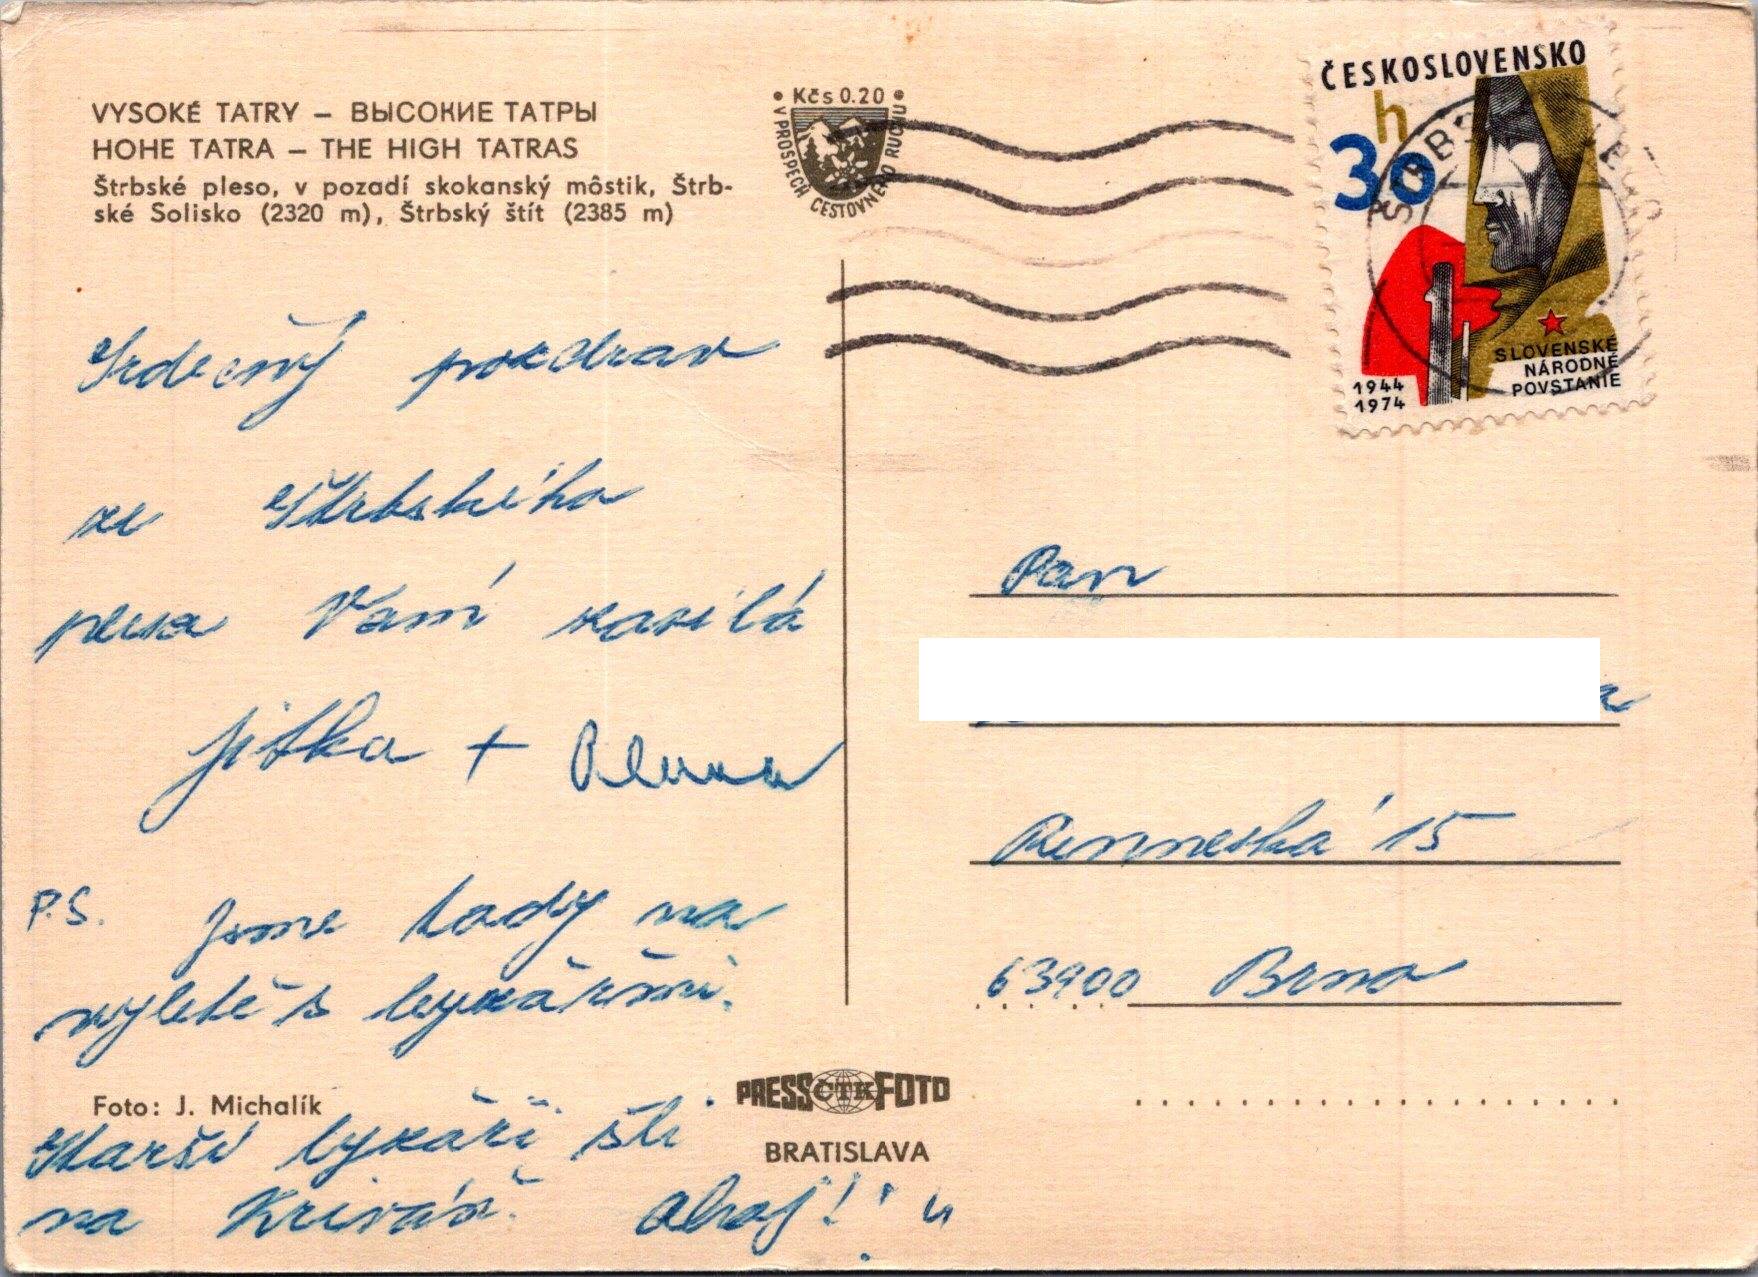 VYSOKÉ TATRY – ВЫСОКИЕ ТАТРЫ
HOHE TATRA – THE HIGH TATRAS
Štrbské pleso, v pozadí skokanský môstik, Štrb-
ské Solisko (2320 m), Štrbský štít (2385 m)
• Kčs 0.20 •
V PROSPECH CESTOVNÉHO RUCHU
ČESKOSLOVENSKO
30 h
SLOVENSKÉ
NÁRODNÉ
POVSTANIE
1944
1974
Srdečný pozdrav
ze Štrbského
plesa Vám zasílá
Jitka +
P.S. Jsme tady na
výletě s lyžařemi.
Starší lyžaři šli
na Kriváň. Ahoj!
Pan
Renneská 15
63900 Brno
Foto: J. Michalík
PRESS ČTK FOTO
BRATISLAVA